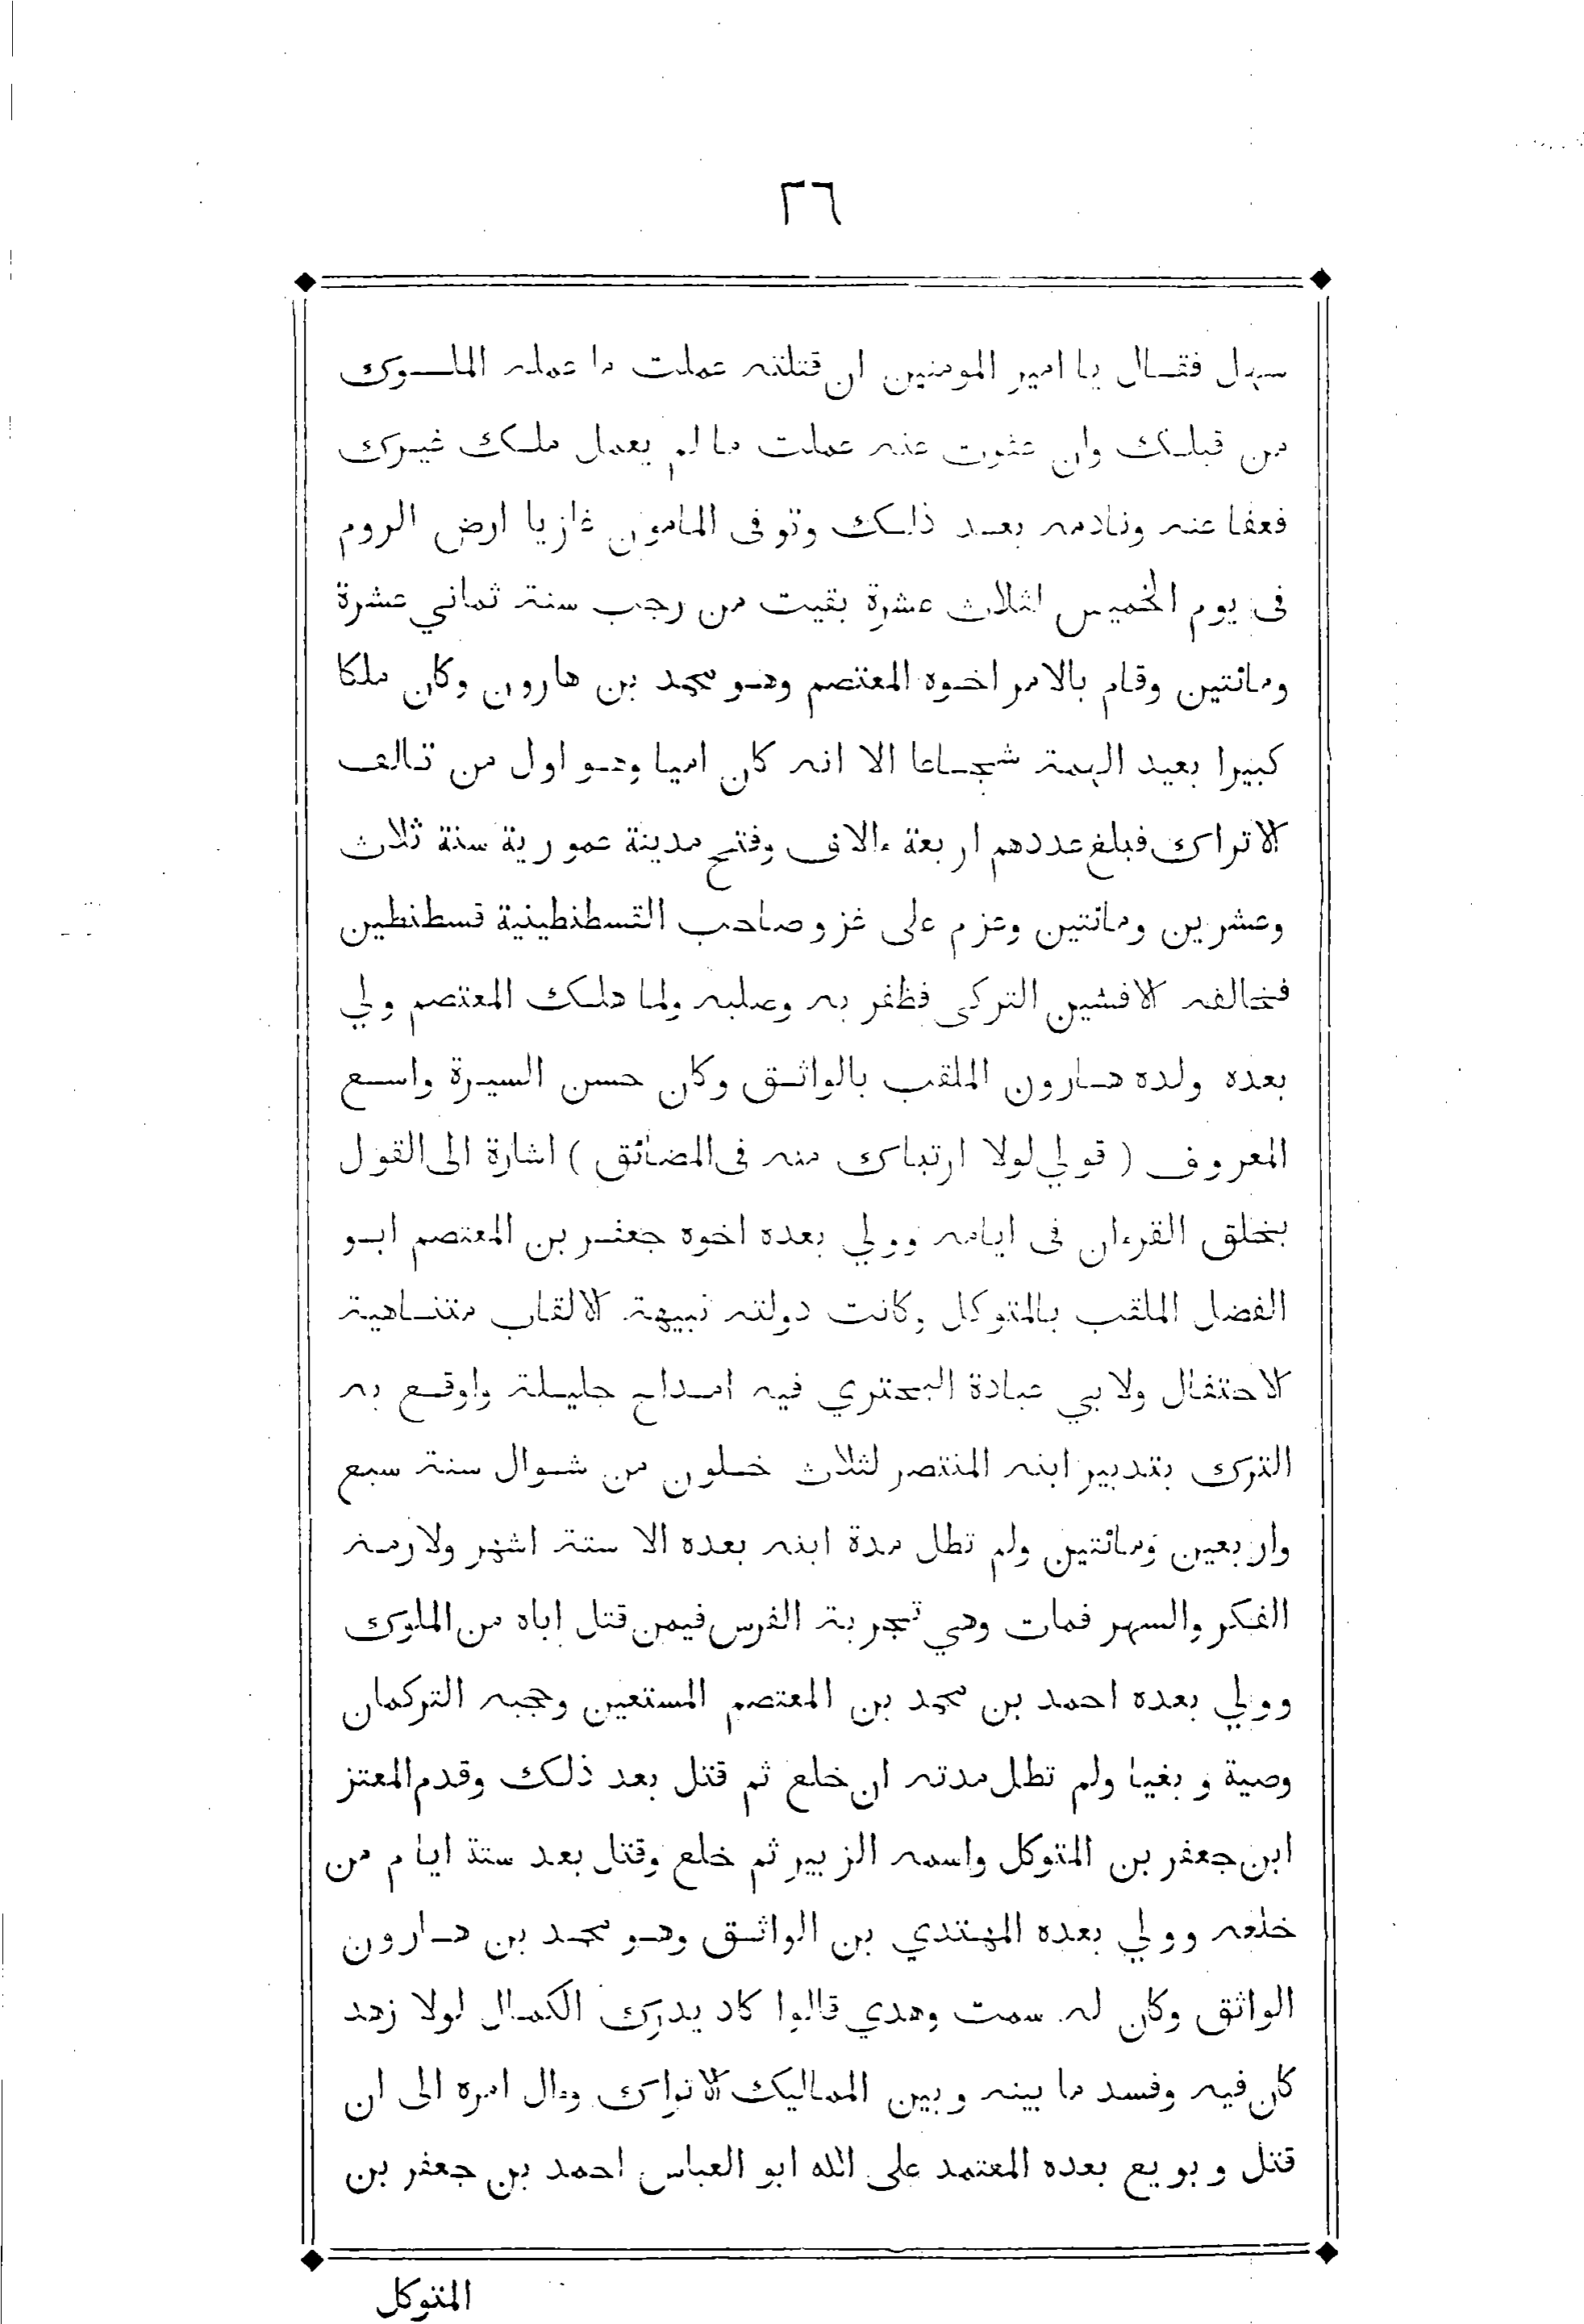 ٢٦
سهل فقال يا امير المومنين ان قتلته عملت ما عمله الملوك
من قبلك وان عفوت عنه عملت ما لم يعمل ملك غيرك
فعفا عنه ونادمه بعد ذلك وتوفى المامون غازيا ارض الروم
فى يوم الخميس لثلاث عشرة بقيت من رجب سنة ثماني عشرة
ومائتين وقام بالامر اخوه المعتصم وهو محمد بن هارون وكان ملكا
كبيرا بعيد الهمة شجاعا الا انه كان اميا وهو اول من تالف
الاتراك فبلغ عددهم اربعة ءالاف وفتح مدينة عمورية سنة ثلاث
وعشرين ومائتين وعزم على غزو صاحب القسطنطينية قسطنطين
فخالفه الافشين التركى فظفر به وصلبه ولما هلك المعتصم ولي
بعده ولده هارون الملقب بالواثق وكان حسن السيرة واسع
المعروف ( قولي لولا ارتباك منه فى المضائق ) اشارة الى القول
بخلق القرءان فى ايامه وولي بعده اخوه جعفر بن المعتصم ابو
الفضل الملقب بالمتوكل وكانت دولته نبيهة الالقاب متناهية
الاحتفال ولابي عبادة البحتري فيه امداح جليلة واوقع به
الترك بتدبير ابنه المنتصر لثلاث خلون من شوال سنة سبع
واربعين ومائتين ولم تطل مدة ابنه بعده الا ستة اشهر ولازمه
الفكر والسهر فمات وهي تجربة الفرس فيمن قتل اباه من الملوك
وولي بعده احمد بن محمد بن المعتصم المستعين وحجبه التركمان
وصية وبغيا ولم تطل مدته ان خلع ثم قتل بعد ذلك وقدم المعتز
ابن جعفر بن المتوكل واسمه الزبير ثم خلع وقتل بعد ستة ايام من
خلعه وولي بعده المهتدي بن الواثق وهو محمد بن هارون
الواثق وكان له سمت وهدي قالوا كاد يدرك الكمال لولا زهد
كان فيه وفسد ما بينه وبين المماليك الاتراك وءال امره الى ان
قتل وبويع بعده المعتمد على الله ابو العباس احمد بن جعفر بن
المتوكل